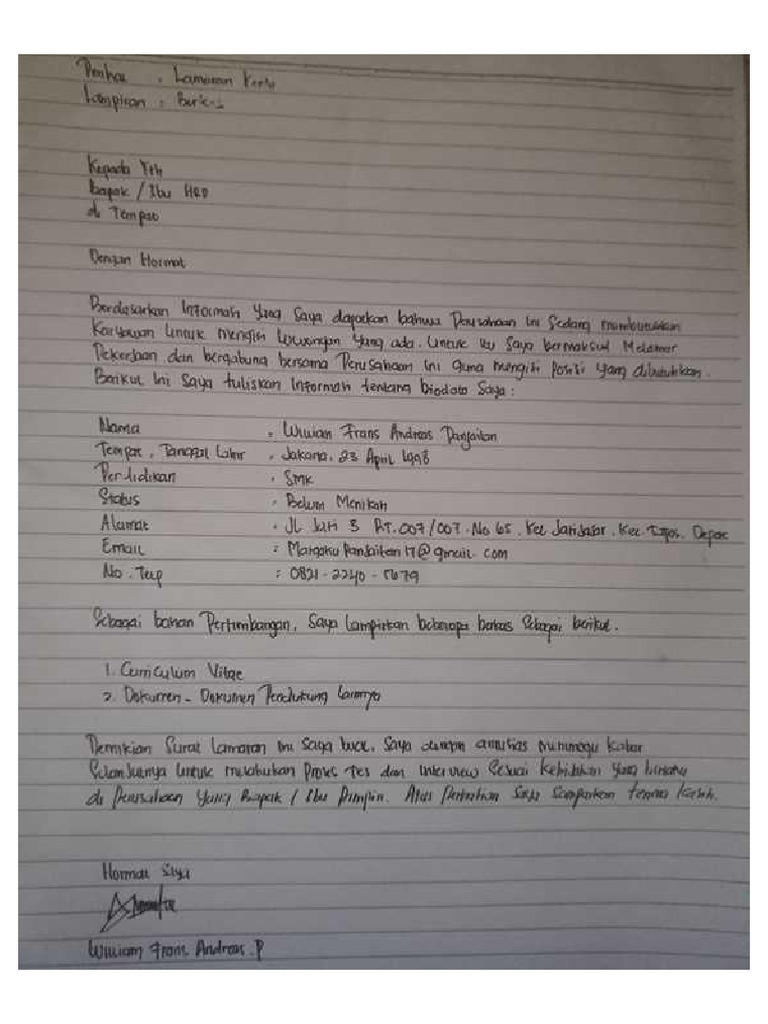 Perihal : Lamaran Kerja
Lampiran : Berkas
Kepada Yth
Bapak / Ibu HRD
di Tempat
Dengan Hormat
Berdasarkan Informasi yang saya dapatkan bahwa Perusahaan ini Sedang membutuhkan
Karyawan untuk mengisi Lowongan yang ada. Untuk itu Saya bermaksud Melamar
Pekerjaan dan bergabung bersama Perusahaan ini guna mengisi Posisi yang dibutuhkan.
Berikut ini Saya tuliskan Informasi tentang biodata Saya :
Nama : William Frans Andreas Panjaitan
Tempat, Tanggal Lahir : Jakarta, 23 April 1998
Pendidikan : SMK
Status : Belum Menikah
Alamat : JL. Jati 3 RT.007/007 No 65, Kec Jatijajar, Kec. Tapos. Depok
Email : MargokuPanjaitan17@gmail.com
No. Telp : 0821-2240-5679
Sebagai bahan Pertimbangan, Saya Lampirkan beberapa berkas Sebagai berikut.
1. Curriculum Vitae
2. Dokumen - Dokumen Pendukung Lainnya
Demikian Surat Lamaran ini Saya buat, Saya dengan antusias menunggu Kabar
Selanjutnya untuk melakukan Proses Tes dan Interview Sesuai Kebijakan yang berlaku
di Perusahaan yang Bapak / Ibu Pimpin. Atas Perhatian Saya Sampaikan terima kasih.
Hormat Saya
William Frans Andreas .P